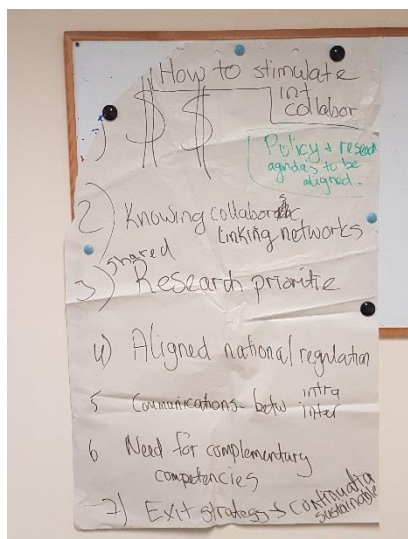 How to stimulate
int
collabor
1) $ $
Policy + research
agenda's to be
aligned.
2) Knowing collaborators
Linking networks
shared
3) Research prioritie
4) Aligned national regulation
5 Communications - betw intra
inter
6 Need for complementary
competencies
7) Exit strategy → continuation
sustainable